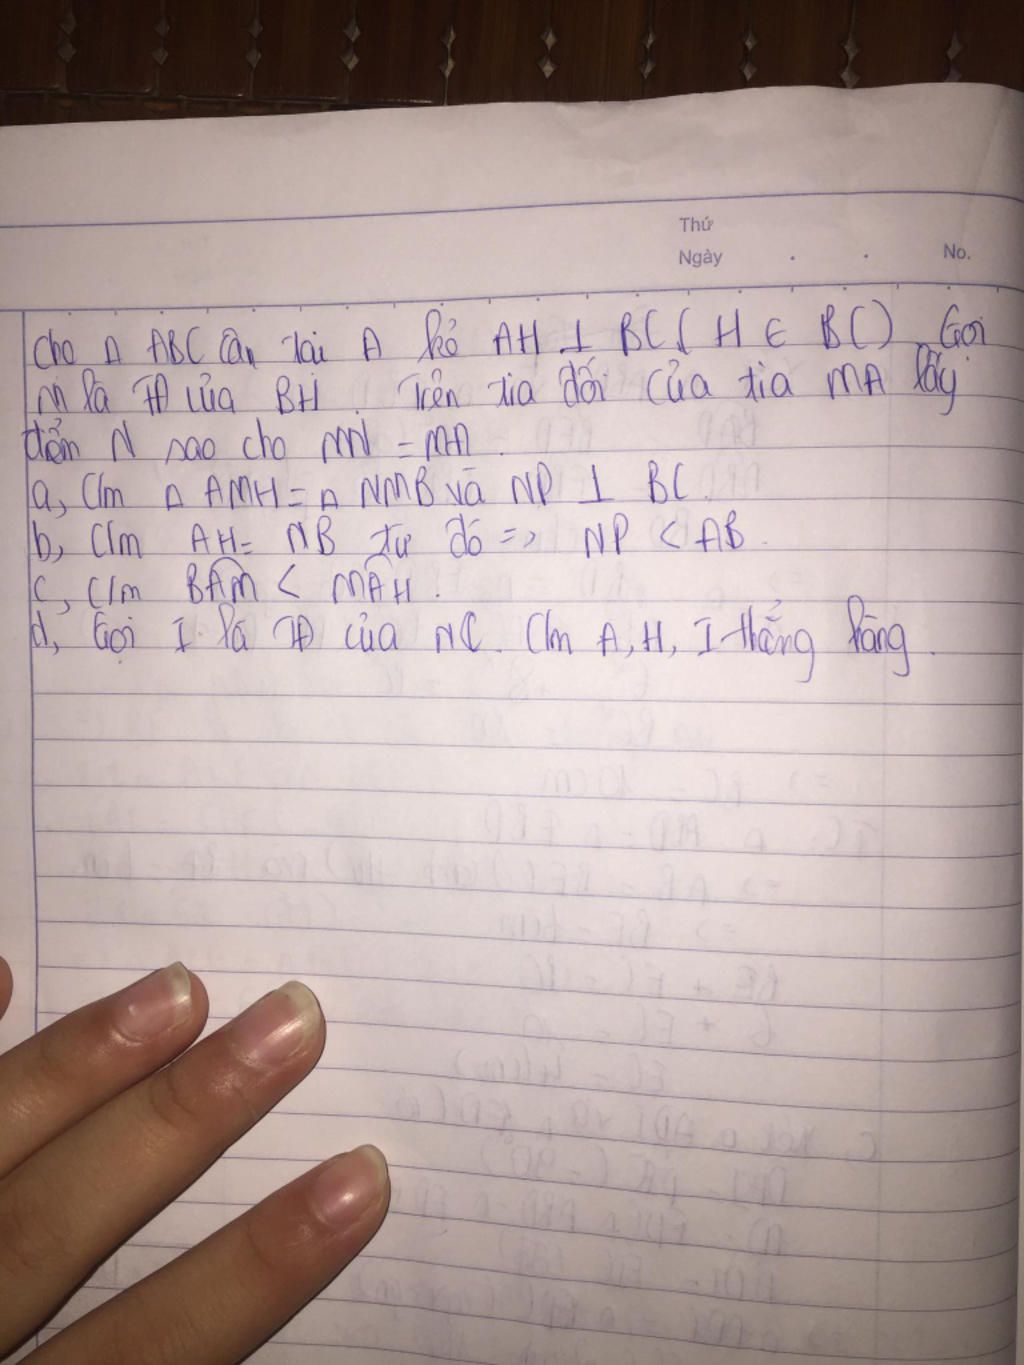 Thứ
Ngày . . No.
Cho Δ ABC Cân tại A kẻ AH ⊥ BC ( H ∈ BC) Gọi
M là TĐ của BH. Trên tia đối của tia MA lấy
điểm N sao cho MN = MA.
a, C/m Δ AMH = Δ NMB và NP ⊥ BC.
b, C/m AH = NB từ đó => NP < AB.
c, C/m BAM < MAH.
d, Gọi I là TĐ của NC. C/m A, H, I thẳng hàng.